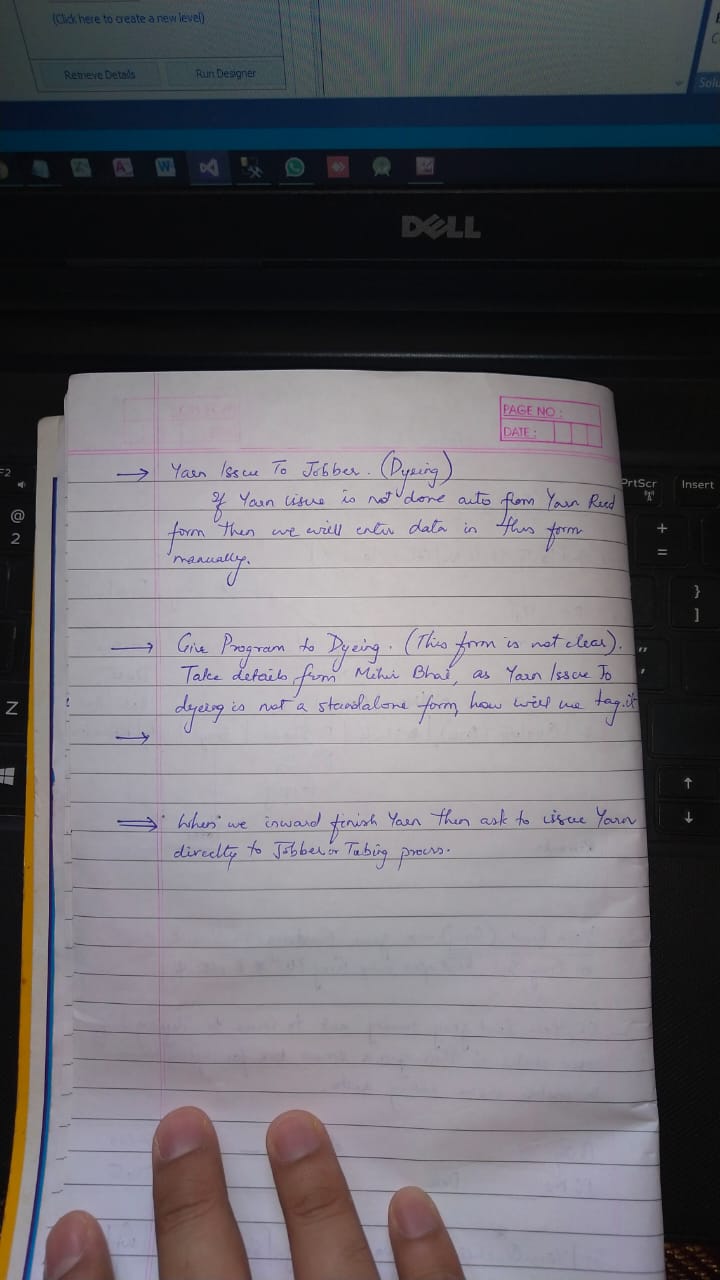 (Click here to create a new level)
Retrieve Details Run Designer
DELL
PAGE NO :
DATE :
→ Yarn Issue To Jobber. (Dyeing)
If Yarn issue is not done auto from Yarn Recd
form then we will enter data in this form
manually.
→ Give Program to Dyeing. (This form is not clear).
Take details from Mihir Bhai, as Yarn Issue To
dyeing is not a standalone form, how will we tag it
→
→ When we inward finish Yarn then ask to issue Yarn
directly to Jobber or Tubing process.
F2
@
2
Z
PrtScr
Insert
+
=
}
]
"
'
↑
↓